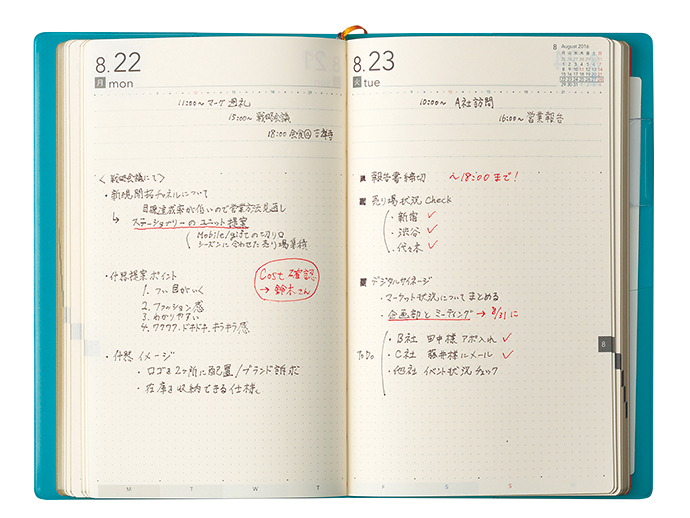 8.22
月 mon
11:00〜 マーケ週礼
15:00〜 戦略会議
18:00 会食@吉祥寺
〈戦略会議にて〉
・新規開拓チャネルについて
目標達成率が低いので営業方法見直し
↳ ステーショナリーのユニット提案
Mobile/giftの切り口
シーズンに合わせた売り場集積
・什器提案ポイント
1. つい目がいく
2. ファッション感
3. わかりやすい
4. ワクワク、ドキドキ、キラキラ感
Cost確認
→ 鈴木さん
・什器イメージ
・ロゴを2ヶ所に配置/ブランド訴求
・在庫を収納できる仕様。
M T W T
8.23
火 tue
8 August 2016
10:00〜 A社訪問
16:00〜 営業報告
報告書締切 〜18:00まで!
売り場状況 Check
・新宿 ✓
・渋谷 ✓
・代々木 ✓
デジタルサイネージ
・マーケット状況についてまとめる
・企画部とミーティング → 8/31に
ToDo
・B社 田中様 アポ入れ ✓
・C社 藤井様にメール ✓
・他社 イベント状況チェック
8
F S S